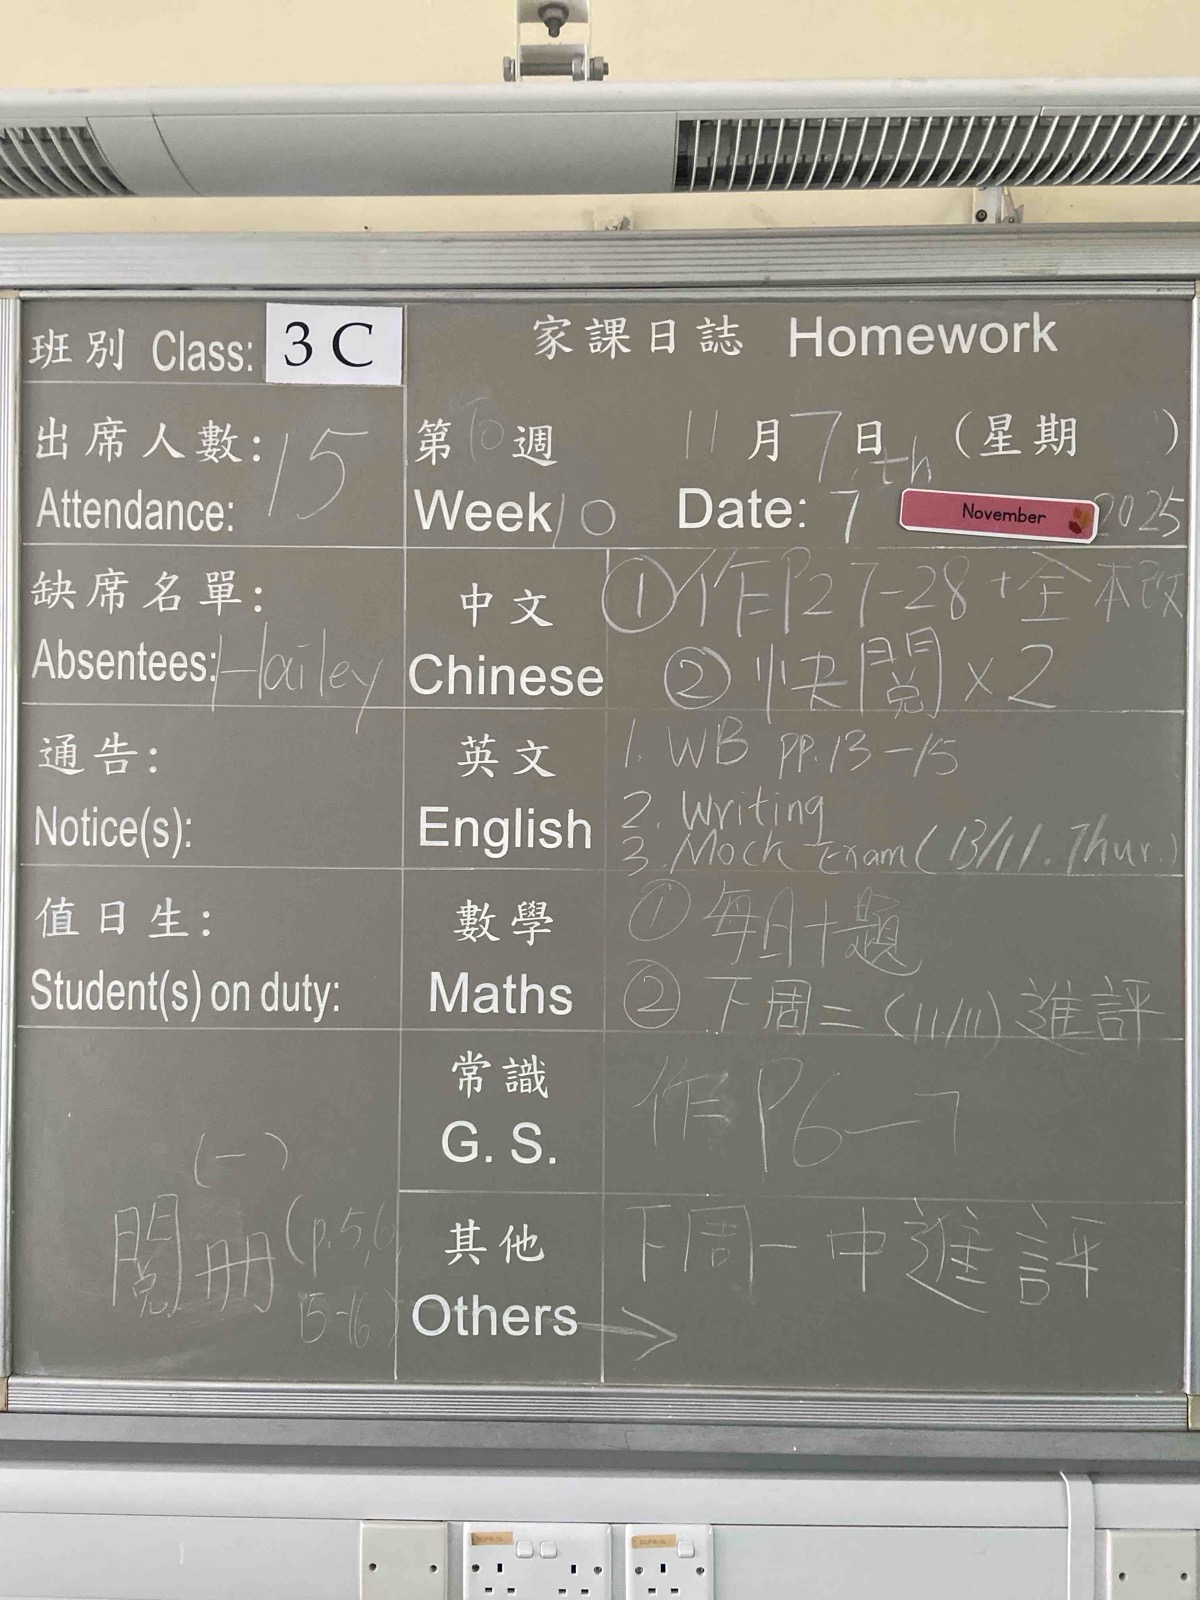 班別 Class: 3 C
家課日誌 Homework
出席人數: 15
Attendance:
第10週 11月7日 (星期 )
Week 10 Date: 7th November 2025
缺席名單:
Absentees: Hailey
中文
Chinese
①作P27-28+全本改
②快閱x2
通告:
Notice(s):
英文
English
1. WB pp.13-15
2. Writing
3. Mock Exam (13/11. Thur.)
值日生:
Student(s) on duty:
數學
Maths
①每日十題
②下周二(11/11)進評
常識
G. S.
作P6-7
(一)
閱冊(p.5,6
15-16)
其他
Others →
下周一中進評